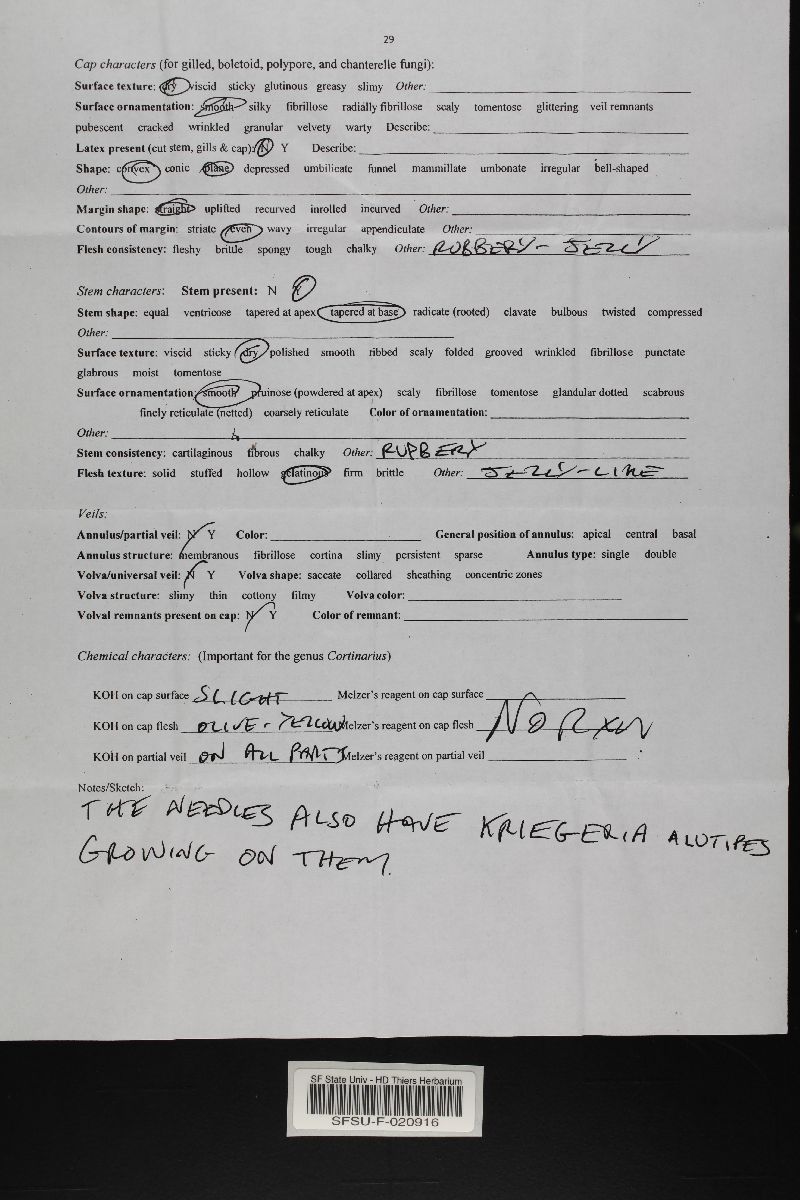 29
Cap characters (for gilled, boletoid, polypore, and chanterelle fungi):
Surface texture: dry viscid sticky glutinous greasy slimy Other:
Surface ornamentation: smooth silky fibrillose radially fibrillose scaly tomentose glittering veil remnants
pubescent cracked wrinkled granular velvety warty Describe:
Latex present (cut stem, gills & cap): N Y Describe:
Shape: convex conic plane depressed umbilicate funnel mammillate umbonate irregular bell-shaped
Other:
Margin shape: straight uplifted recurved inrolled incurved Other:
Contours of margin: striate even wavy irregular appendiculate Other:
Flesh consistency: fleshy brittle spongy tough chalky Other: RUBBERY - JELLY
Stem characters: Stem present: N Y
Stem shape: equal ventricose tapered at apex tapered at base radicate (rooted) clavate bulbous twisted compressed
Other:
Surface texture: viscid sticky dry polished smooth ribbed scaly folded grooved wrinkled fibrillose punctate
glabrous moist tomentose
Surface ornamentation: smooth pruinose (powdered at apex) scaly fibrillose tomentose glandular dotted scabrous
finely reticulate (netted) coarsely reticulate Color of ornamentation:
Other:
Stem consistency: cartilaginous fibrous chalky Other: RUBBERY
Flesh texture: solid stuffed hollow gelatinous firm brittle Other: JELLY-LIKE
Veils:
Annulus/partial veil: N Y Color: General position of annulus: apical central basal
Annulus structure: membranous fibrillose cortina slimy persistent sparse Annulus type: single double
Volva/universal veil: N Y Volva shape: saccate collared sheathing concentric zones
Volva structure: slimy thin cottony filmy Volva color:
Volval remnants present on cap: N Y Color of remnant:
Chemical characters: (Important for the genus Cortinarius)
KOH on cap surface SLIGHT Melzer's reagent on cap surface
KOH on cap flesh OLIVE - YELLOW Melzer's reagent on cap flesh NO RXN
KOH on partial veil ON ALL PARTS Melzer's reagent on partial veil
Notes/Sketch:
THE NEEDLES ALSO HAVE KRIEGERIA ALUTIPES
GROWING ON THEM.
SF State Univ - HD Thiers Herbarium
SFSU-F-020916